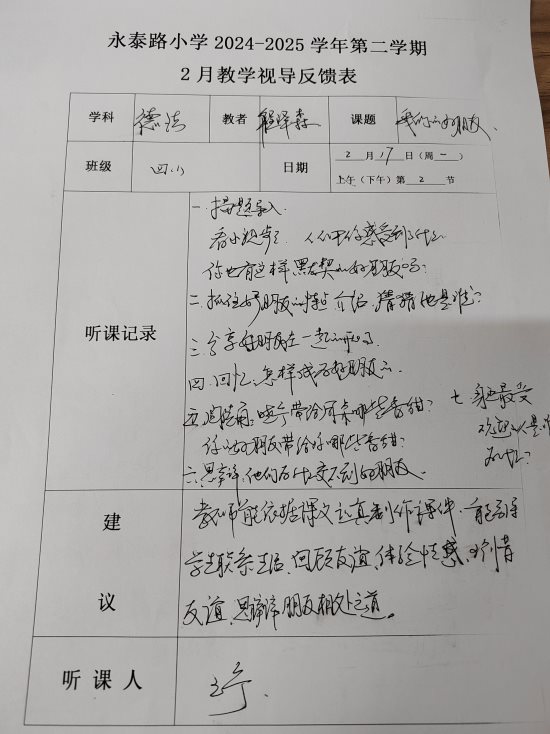 永泰路小学 2024-2025 学年第二学期
2 月教学视导反馈表
学科 德法 教者 课题 我们的好朋友
班级 四 日期 2 月 17 日（周一）
上午（下午）第 2 节
听课记录
一.揭题导入.
你也有这样默契的好朋友吗?
二.抓住好朋友的特点介绍,猜猜他是谁?
三.分享好朋友在一起的
四.回忆,怎样成为好朋友的.
带给同桌哪些香甜?
你的好朋友带给你哪些香甜?
六.思辨,他们为什么交不到好朋友.
七.身边最受
欢迎的人是谁
为什么?
建议
教师能依据课文认真制作课件.能引导
学生联系生活,回顾友谊,体验情感,
友谊,思辨朋友相处之道。
听课人